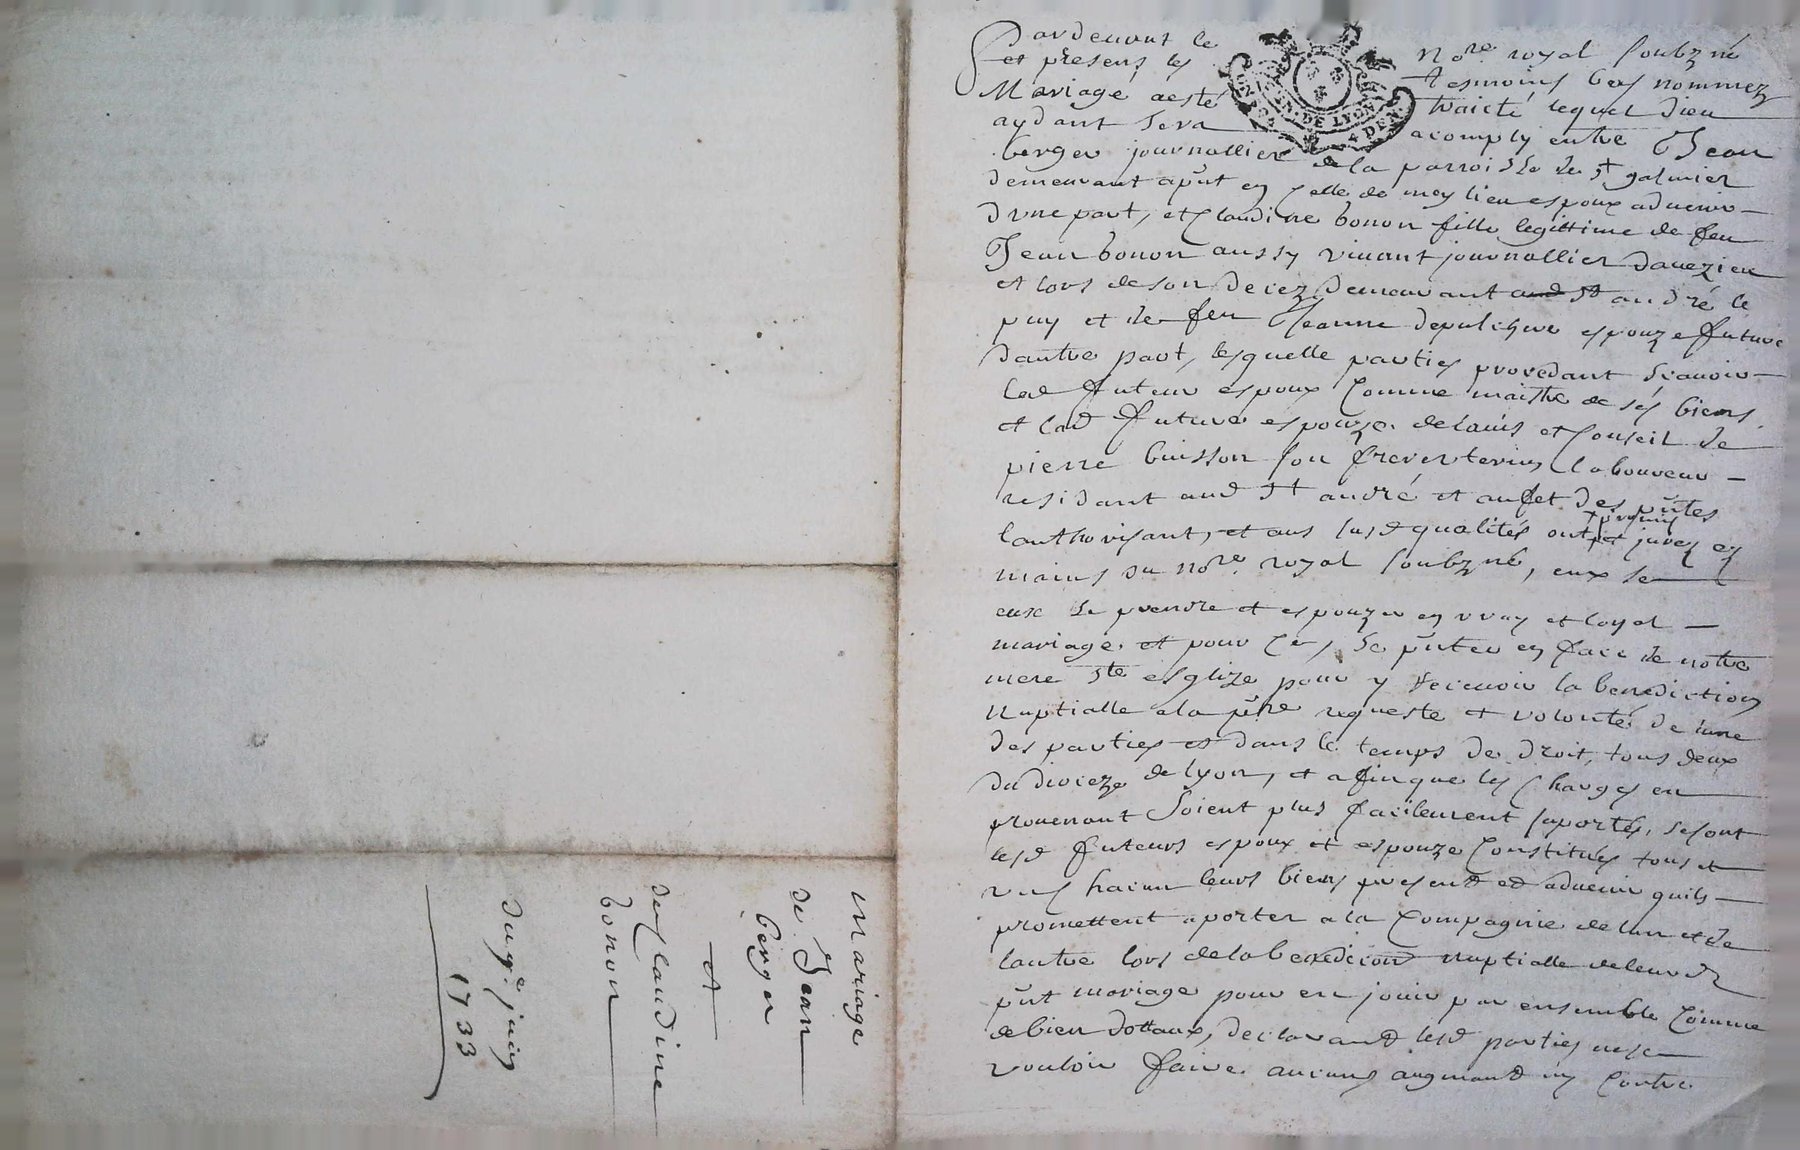 Mariage
de Jean
berger
et
de Claudine
bonon
du 9e juin
1733
Pardevant le no.re royal soubzné
et présens les tesmoins bas nommez
Mariage a esté traicté lequel Dieu
aydant sera acomply entre Jean
berger journallier de la parroisse de St galmier
demeurant apnt en celle de mey lieu espoux advenir
d'une part, et Claudine bonon fille legittime de feu
Jean bonon aussy vivant journallier daveizieu
et lors de son decez demeurant aud St andré le
puy et de feu Jeanne espouze future
dautre part, lesquelle parties procedant scavoir
led futeur espoux Comme maistre de ses biens
et lad future espouze de lavis et Conseil de
pierre buisson son frere uterin laboureur
residant aud St andré et au fet des pntes
lauthorisant, et aus susd qualités ont promis et jurez es
mains du no.re royal soubzné, eux de
eux se prendre et espouzer en vray et loyal
mariage et pour Ces se pnter en face de notre
mere Ste esglize pour y recevoir la benediction
nuptialle a la pre requeste et volonté de lune
des parties et dans le temps de droit, tous deux
du dioceze de lyon, et afin que les Charges en
provenant soient plus facilement suportés, se sont
lesd futeurs espoux et espouze Constitués tous et
uns chacun leurs biens present et advenir quils
promettent aporter a la Compagnie de lun et de
lautre lors de la benediction nuptialle de leurd
pnt mariage pour en jouir par ensemble Comme
de bien dottaux, declarant lesd parties ne se
vouloir faire aucuns augmant ny Contre